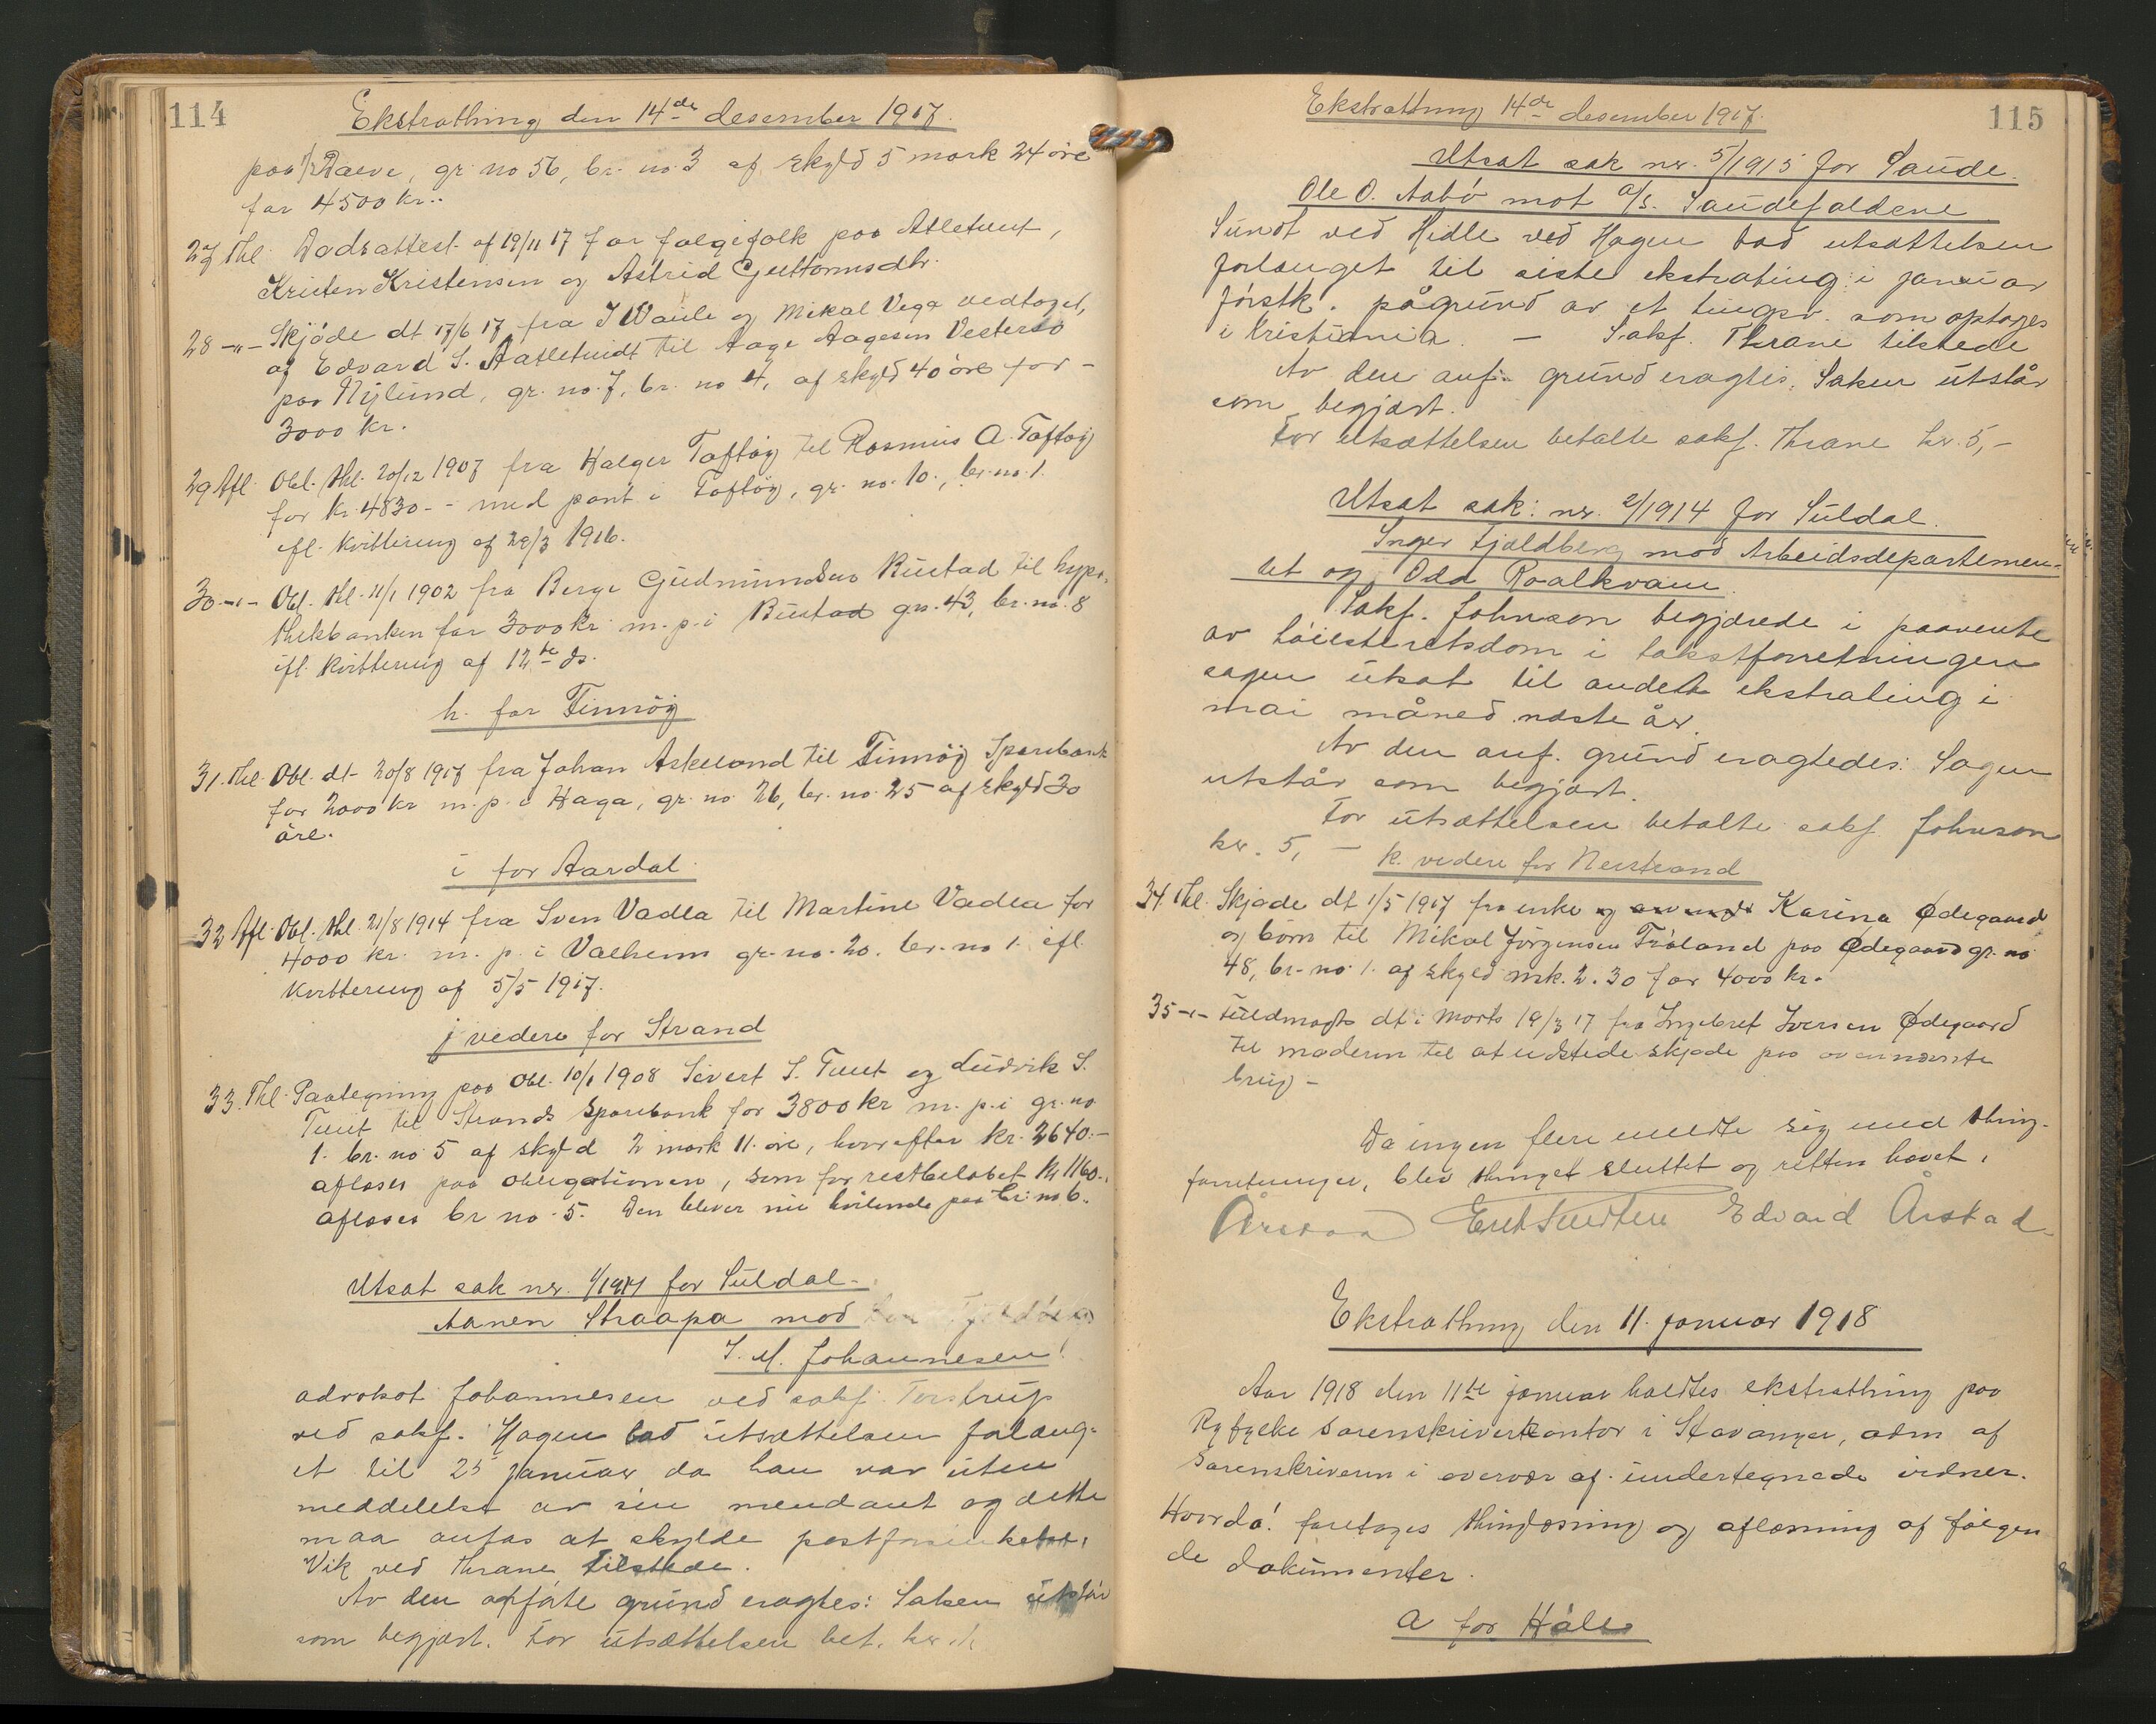 114
Ekstrathing den 14de desember 1917.
paa Raeve, gr. no 56, br. no. 3 af skyld 5 mark 24 øre
for 4500 kr.
27 Thl. Dødsattest af 19/11 17 for følgefolk paa Atletveit,
Kristen Kristensen og Astrid Guttormsdtr.
28 -"- Skjøde dt 17/6 17 fra J Waule og Mikal Vega vedtaget,
af Edvard S. til Aage Aagesen Vestersø
paa Nylund, gr. no. 7, br. no 4, af skyld 40 øre for -
3000 kr.
29 Afl. Obl. thl. 20/12 1907 fra Halger Toftøy til Rasmus A. Toftøy
for kr. 4830 - - med pant i Toftøy, gr. no. 10., br. no. 1.
ifl. kvittering af 28/3 1916.
30 -"- Obl. thl. 11/1 1902 fra Berge Gudmundsen Rustad til hypo-
thekbanken for 3000 kr. m. p. i Rustad gr. 43, br. no. 8
ifl. kvittering af 12te ds.
h. for Finnøy
31. Thl. Obl. dt. 20/8 1917 fra Johan Askeland til Finnøy Sparebank
for 2000 kr m. p. i Haga, gr. no 26, br. no. 25 af skyld 30
øre.
i for Aardal
32 Afl. Obl. thl. 21/8 1914 fra Sven Vadla til Martine Vadla for
4000 kr. m. p. i Valheim gr. no. 20. br. no 1. ifl.
kvittering af 5/5 1917.
j videre for Strand
33. Thl. Paategning paa Obl. 10/1 1908 Sivert S. Tveit og Ludvik S.
Tveit til Strands Sparebank for 3800 kr m. p. i gr. no
1. br. no 5 af skyld 2 mark 11 øre, hvorefter kr. 2640.-
afløses paa obligationen, som for restbeløbet kr 1160..
afløses br no. 5. Den blever nu hvilende paa br. no 6.
Utsat sak nr. 1/1914 for Suldal.
Aanen Straapa mod
J. M. Johannesen
advokat Johannesen ved sakf. Torstrup
ved sakf. Hagen bad utsættelsen forlæng-
et til 25 januar da han var uten
meddelelse av sin mandant og dette
maa antas at skylde postforsinkelse.
Vik ved Thrane tilstede.
Av den anførte grund eragtes: Saken utstår
som begjært. For utsættelsen bet. kr.
115
Ekstrathing 14de desember 1917.
Utsat sak nr. 5/1915 for Saude.
Ole O. Aabø mot A/S. Saudefaldene
Sundt ved Hidle ved Hagen bad utsættelsen
forlænget til siste ekstrating i januar
førstk. på grund av et tingsv. som optages
i Kristiania. — Sakf. Thrane tilstede
Av den anf. grund eragtes: Saken utstår
som begjært.
For utsættelsen betalte sakf. Thrane kr. 5,-
Utsat sak: nr. 2/1914 for Suldal.
Inger Fjeldberg mod Arbeidsdepartemen-
tet og Odd Roalkvam.
Sakf. Johnson begjærede i paavente
av høiesteretsdom i takstforretningen
sagen utsat til andet ekstrating i
mai måned næste år.
Av den anf. grund eragtedes: Sagen
utstår som begjært.
For utsættelsen betalte sakf. Johnson
kr. 5, —
k. videre for Nerstrand
34. Thl. Skjøde dt 1/5 1917 fra enke og Karina Ødegaard
og børn til Mikal Jørgensen Frøland paa Ødegaard gr. no
48, br. no. 1. af skyld mrk. 2.30 for 4000 kr.
35 -"- Fuldmagt dt i Marts 19/3 17 fra Ingebret Iversen Ødegaard
til moderen til at udstede skjøde paa ovennævnte
brug -
Da ingen flere meldte sig med thing-
forretninger, blev thinget sluttet og retten hævet.
Edvard Årstad
Ekstrathing den 11. januar 1918
Aar 1918 den 11te januar holdtes ekstrathing paa
Ryfylke sorenskriverkontor i Stavanger, adm af
Sorenskriveren i overvær af undertegnede vidner.
Hvorda! foretages thinglæsning og aflæsning af følgen
de dokumenter.
a for Hålle